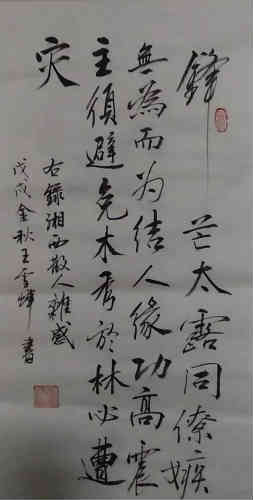 鋒芒太露同僚嫉
無為而为结人缘功高震
主须避免木秀於林必遭
灾
右録湘西散人雜感
戊戌金秋王雪峰書